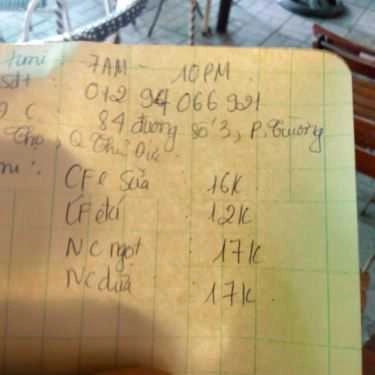 time : 7AM - 10PM
sđt : 012 94 066 921
Đ C : 84 đường số 3, P. Trường
Thọ, Q. Thủ Đức
CFe Sữa : 16K
: 12K
Nc ngọt : 17K
Nc dừa : 17K